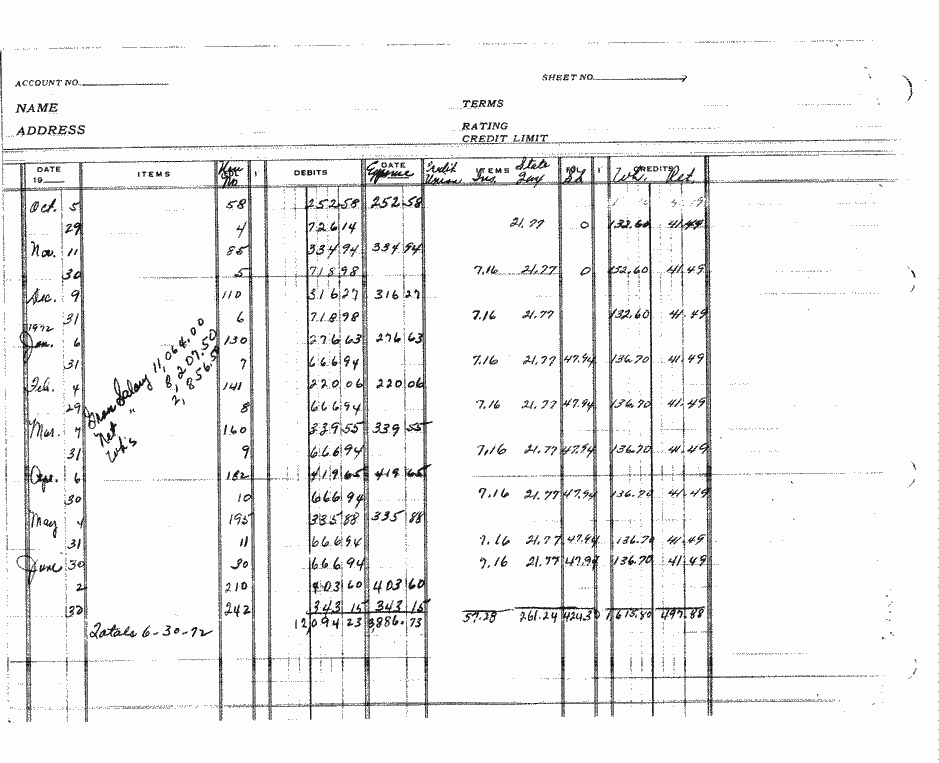 ACCOUNT NO. SHEET NO.
NAME TERMS
ADDRESS RATING
CREDIT LIMIT
DATE 19 ITEMS No DEBITS DATE Expense Credit Union ITEMS Ins. State Tax FOL. CREDITS Wh. Ret.
Oct. 5 58 252 58 252 58
29 4 726 14 21.77 0 132.60 41.49
Nov. 11 85 334 94 334 94
30 5 718 98 7.16 21.77 0 152.60 41.49
Dec. 9 110 316 27 316 27
31 6 718 98 7.16 21.77 132.60 41.49
1972
Jan. 6 130 276 63 276 63
31 7 666 94 7.16 21.77 47.94 136.70 41.49
Feb. 4 141 220 06 220 06
29 8 666 94 7.16 21.77 47.94 136.70 41.49
Mar. 7 160 339 55 339 55
31 9 666 94 7.16 21.77 47.94 136.70 41.49
Apr. 6 182 419 65 419 65
30 10 666 94 7.16 21.77 47.94 136.70 41.49
May 4 195 335 88 335 88
31 11 666 94 7.16 21.77 47.94 136.70 41.49
June 30 30 666 94 7.16 21.77 47.94 136.70 41.49
2 210 403 60 403 60
30 242 343 15 343 15 57.28 261.24 1,615.80 497.88
Totals 6-30-72 12,094 23 3,886.73
Salary 11,064.00
Net " 8,207.50
Wh's 2,856.50